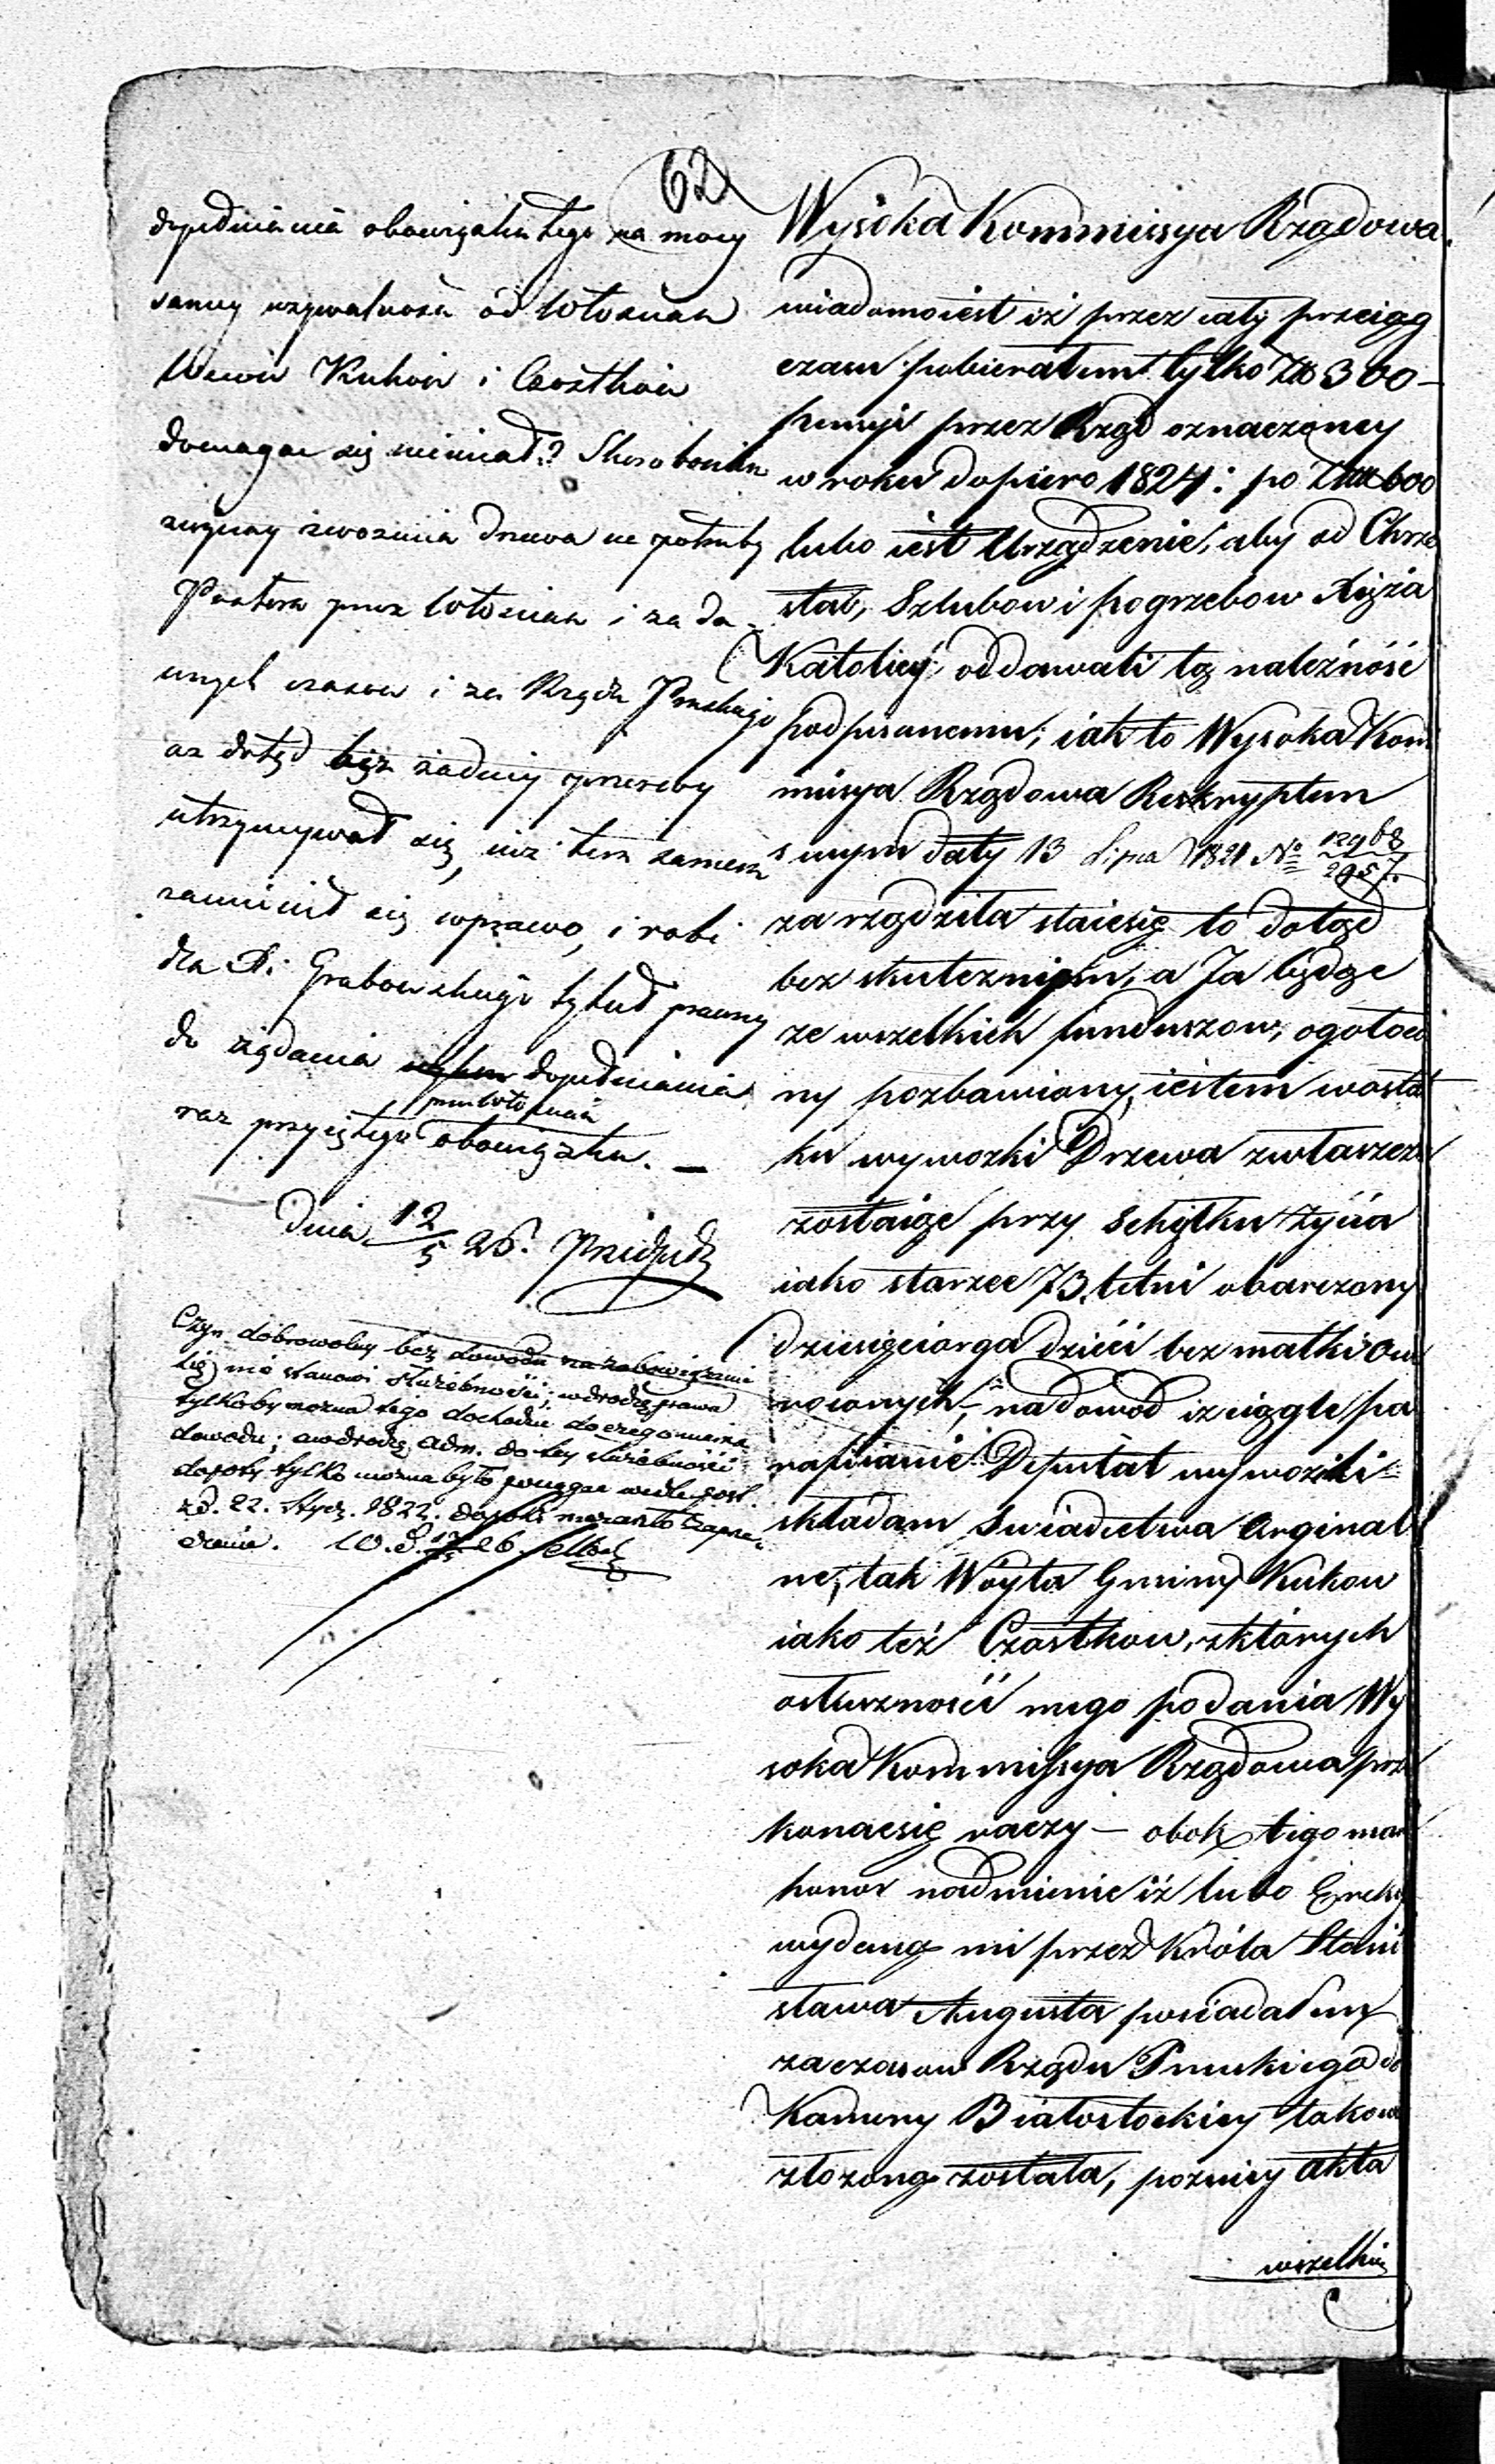 62
dopełniania obowiązku tego na mocy
samey używalności od Włościan
Wsiów Kukow i Czostkow
domagać się niemiał? Skoro bowiem
zwożenia drzewa na potrzeby
Pastora przez Włościan i za da-
wnych czasow i za Rządu Pruskiego
az dotąd bez żadney przerwy
utrzymywał się, niż tem samem
zamienił się w prawo, i robi
dla X. Grabowskiego tytuł prawny
do żądania dopełniania
przez Włościan
raz przyiętego obowiązku. —
Dnia 12/5 26.
Czyn dobrowolny bez dowodu na zobowiązanie
się nie stanowi służebności; w drodze prawa
tylkoby można tego dochodzić do czego
dowodu; a w drodze adm. do tey służebności
dopoty tylko można było pociągać wedle post.
z d. 22. Stycz. 1822. dopoki
W. d. 26.
Wysoka Kommissya Rządowa.
wiadomo iest iż przez cały przeciąg
czasu pobierałem tylko Zło 300 —
pensyi przez Rząd oznaczoney
w roku dopiero 1824: po 600
lubo iest Urządzenie, aby od Chrzo
stow, Szlubow i pogrzebow Xięża
Katoliccy oddawali tę należność
podpisanemu, iak to Wysoka Kom
missya Rządowa Reskryptem
swym daty 13 Lipca 1821 No 12968/2957.
zarządziła staie się to dotąd
bez skutecznym, a Ja będąc
ze wszelkich funduszow, ogołoco
ny pozbawiony, iestem w osta
ku wywozki Drzewa zwłaszcza
zostaiąc przy schyłku życia
iako starzec 73. letni obarczony
dziesięciorga dzieci bez matki Osie
roconych, — na dowod iż ciągle pa
rafianie Deputat wywozili —
składam Swiadectwa Orginal
ne, tak Wóyta Gminy Kukow
iako też Czostkow, z których
o słuszności mego podania Wy
soka Kommissya Rządowa prze
konać się raczy — obok tego mam
honor nadmienić iż lubo Erekc
wydaną mi przez Króla Stani
sława Augusta posiadałem
za czasow Rządu Pruskiego do
Kamery Białostockiey takowa
złożoną została, pozniey akta
wszelkie